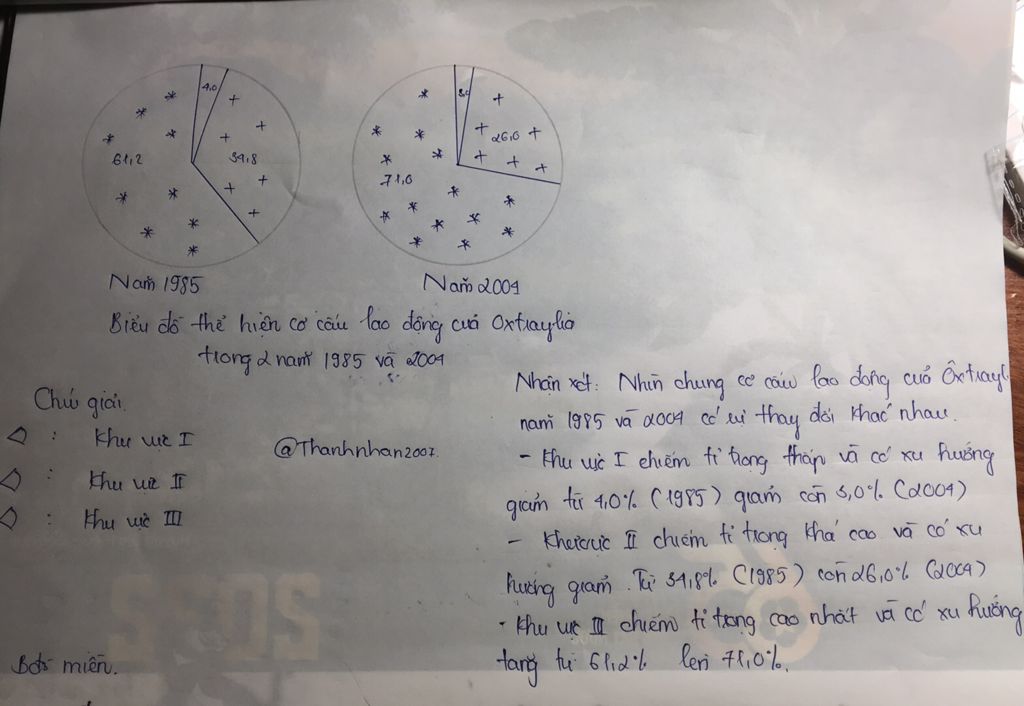 4,0
61,2
34,8
3,0
26,0
71,0
Năm 1985
Năm 2004
Biểu đồ thể hiện cơ cấu lao động của Oxtraylia
trong 2 năm 1985 và 2004
Chú giải.
: Khu vực I
: Khu vực II
: Khu vực III
@Thanhnhan2007.
Nhận xét: Nhìn chung cơ cấu lao động của Ôxtrayl
năm 1985 và 2004 có sự thay đổi khác nhau.
- Khu vực I chiếm tỉ trọng thấp và có xu hướng
giảm từ 4,0% (1985) giảm còn 3,0% (2004)
- Khu vực II chiếm tỉ trọng khá cao và có xu
hướng giảm. Từ 34,8% (1985) còn 26,0% (2004)
- Khu vực III chiếm tỉ trọng cao nhất và có xu hướng
tăng từ 61,2% lên 71,0%.